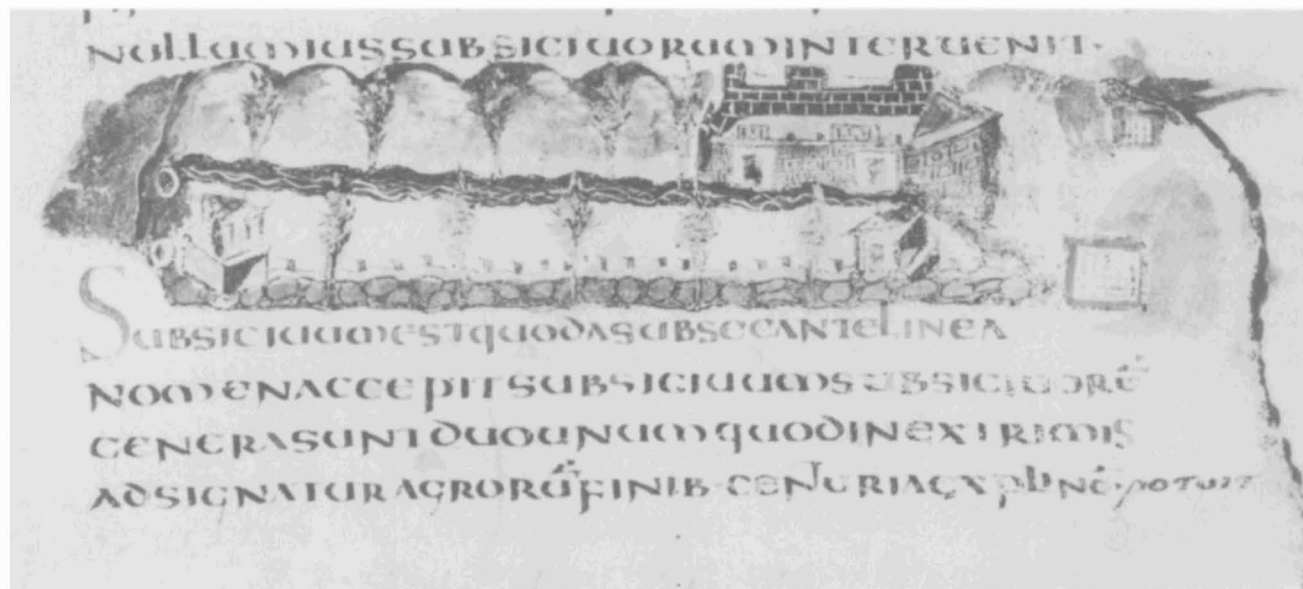 NULLUMIUSSUBSICIUORUMINTERUENIT·
SUBSICIUUMESTQUODASUBSECANTELINEA
NOMENACCEPITSUBSICIUUMSUBSICIUORŪ
GENERASUNTDUOUNUMQUODINEXTRIMIS
ADSIGNATURAGRORŪFINIB·CENTURIA POTUIT